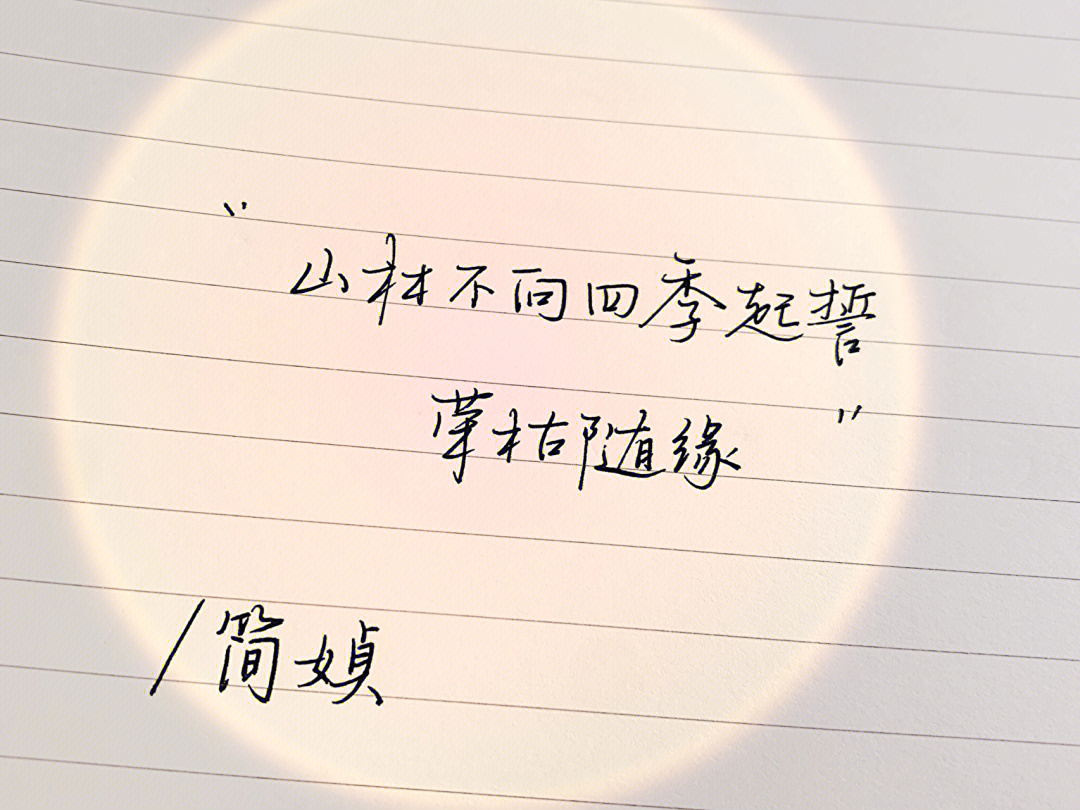 “山林不向四季起誓
荣枯随缘”
/简媜